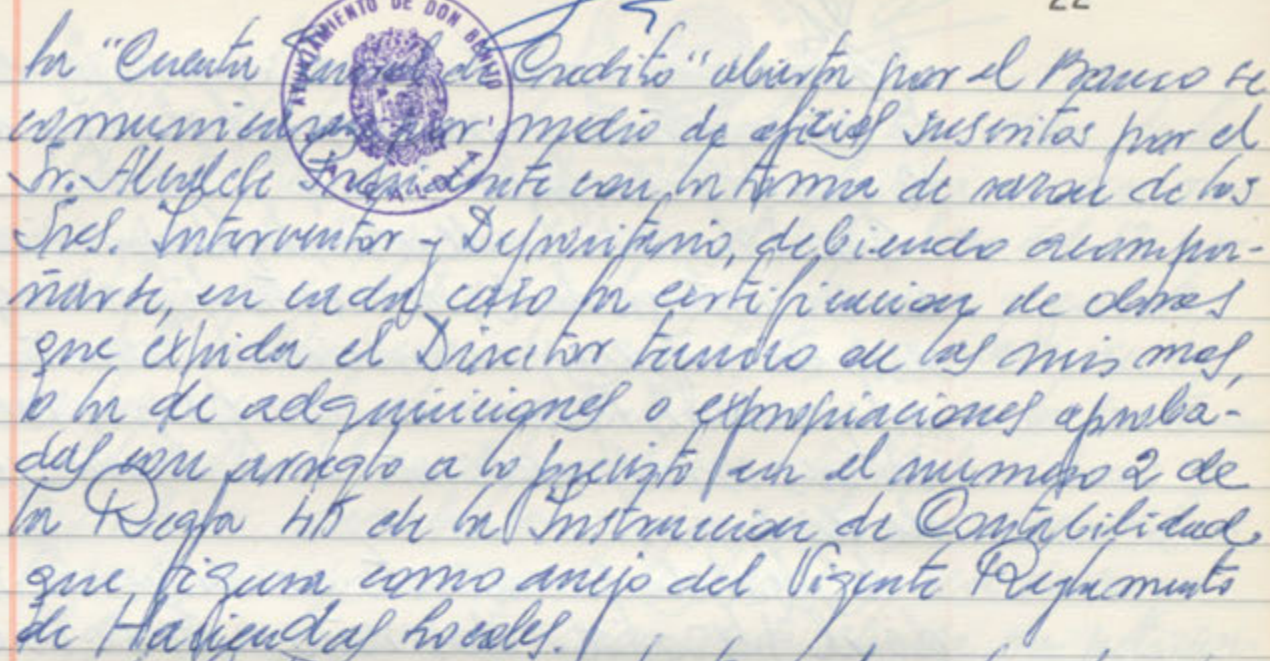 22
AYUNTAMIENTO DE DON BENITO
ALCALDIA
la "Cuenta General de Credito" abierta por el Banco se
comunicaran por medio de oficios suscritos por el
Sr. Alcalde Presidente con la toma de razon de los
Sres. Interventor y Depositario, debiendo acompa-
ñarse, en cada caso la certificacion de obras
que expida el Director tecnico de las mismas,
o la de adquisiciones o expropiaciones aproba-
das con arreglo a lo previsto en el numero 2 de
la Regla de la Instruccion de Contabilidad
que figura como anejo del Vigente Reglamento
de Haciendas Locales.